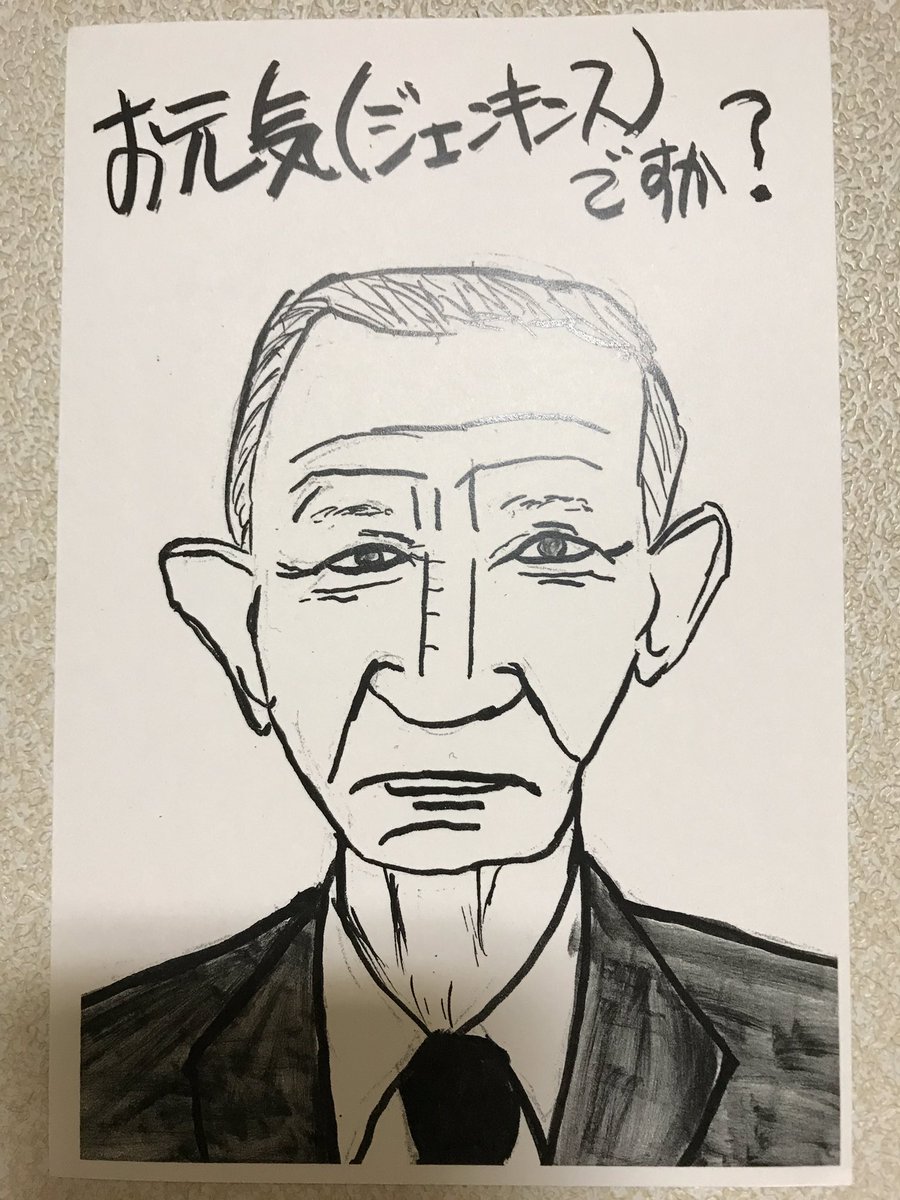 お元気(ジェンキンス)
ですか?